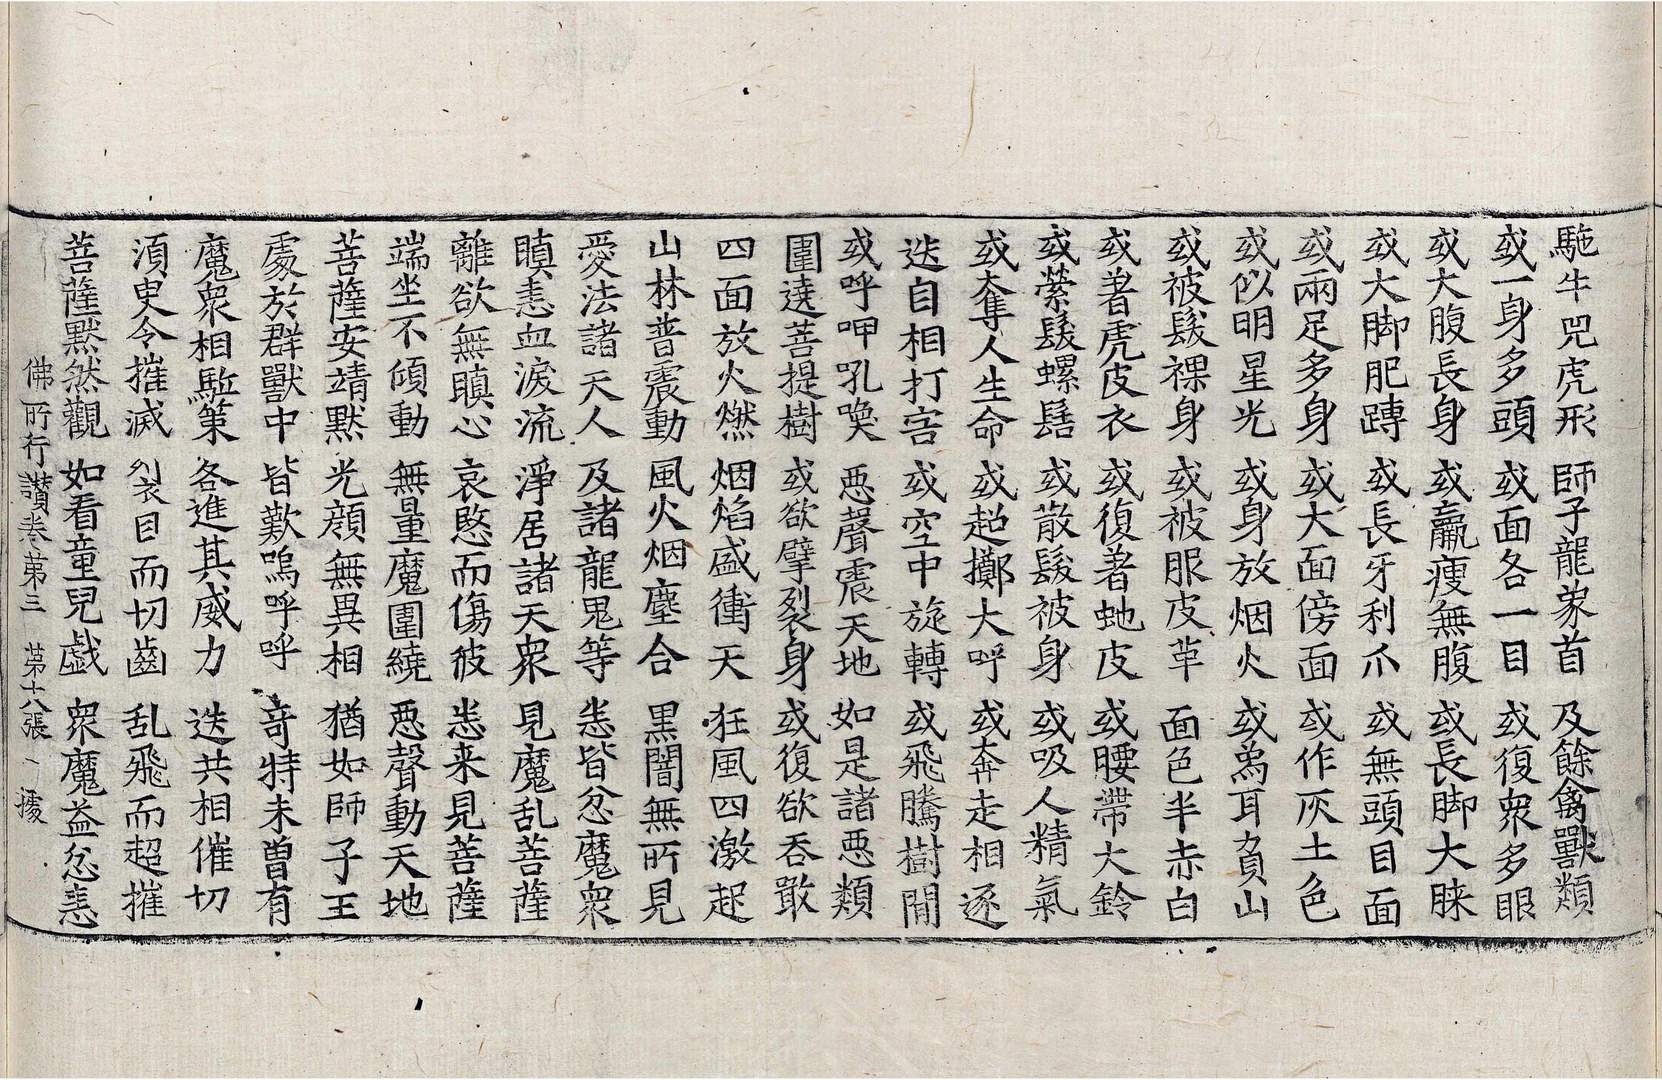 駞牛兕虎形 師子龍象首 及餘禽獸類
或一身多頭 或面各一目 或復衆多眼
或大腹長身 或羸瘦無腹 或長脚大膝
或大脚肥蹲 或長牙利爪 或無頭目面
或兩足多身 或大面傍面 或作灰土色
或似明星光 或身放烟火 或爲耳負山
或被髮裸身 或被服皮革 面色半赤白
或著虎皮衣 或復著虵皮 或腰帶大鈴
或縈髮螺髻 或散髮被身 或吸人精氣
或奪人生命 或超擲大呼 或奔走相逐
迭自相打害 或空中旋轉 或飛騰樹閒
或呼呷吼喚 惡聲震天地 如是諸惡類
圍遶菩提樹 或欲擘裂身 或復欲呑敢
四面放火燃 烟焰盛衝天 狂風四激起
山林普震動 風火烟塵合 黑闇無所見
愛法諸天人 及諸龍鬼等 恚皆忿魔衆
瞋恚血淚流 淨居諸天衆 見魔乱菩薩
離欲無瞋心 哀愍而傷彼 恚来見菩薩
端坐不傾動 無量魔圍繞 惡聲動天地
菩薩安靖默 光顔無異相 猶如師子王
處於群獸中 皆歎嗚呼呼 奇特未曾有
魔衆相駈策 各進其威力 迭共相催切
須臾令摧滅 裂目而切齒 乱飛而超摧
菩薩默然觀 如看童兒戯 衆魔益忿恚
佛所行讚卷第三 第十八張 據